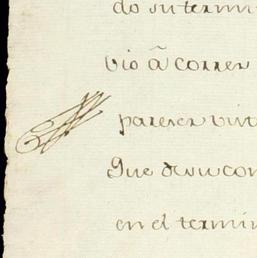 do su termin
vio â correr
pareser vint
Que de su con
en el termin